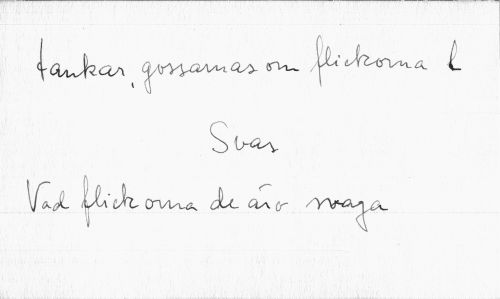 tankar, gossarnas om flickorna l
Svar
Vad flickorna de äro svaga